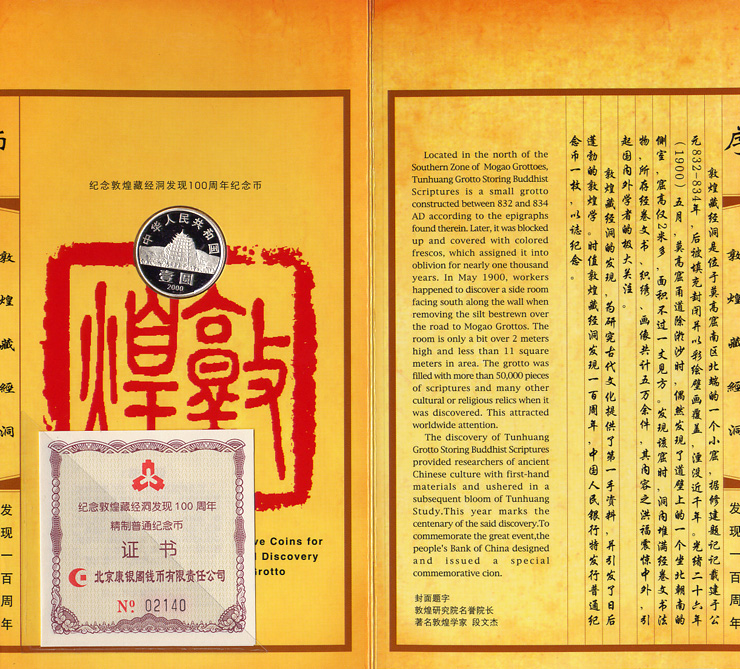 币
敦煌藏經洞
发现一百周年
纪念敦煌藏经洞发现100周年纪念币
中华人民共和国
壹圆
2000
敦煌
纪念敦煌藏经洞发现100周年
精制普通纪念币
证书
北京康银阁钱币有限责任公司
Nº 02140
ve Coins for
Discovery
rotto
Located in the north of the
Southern Zone of Mogao Grottoes,
Tunhuang Grotto Storing Buddhist
Scriptures is a small grotto
constructed between 832 and 834
AD according to the epigraphs
found therein. Later, it was blocked
up and covered with colored
frescos, which assigned it into
oblivion for nearly one thousand
years. In May 1900, workers
happened to discover a side room
facing south along the wall when
removing the silt bestrewn over
the road to Mogao Grottos. The
room is only a bit over 2 meters
high and less than 11 square
meters in area. The grotto was
filled with more than 50,000 pieces
of scriptures and many other
cultural or religious relics when it
was discovered. This attracted
worldwide attention.
The discovery of Tunhuang
Grotto Storing Buddhist Scriptures
provided researchers of ancient
Chinese culture with first-hand
materials and ushered in a
subsequent bloom of Tunhuang
Study.This year marks the
centenary of the said discovery.To
commemorate the great event,the
people's Bank of China designed
and issued a special
commemorative cion.
封面题字
敦煌研究院名誉院长
著名敦煌学家 段文杰
敦煌藏经洞是位于莫高窟南区北端的一个小窟，据修建题记记载建于公
元832-834年，后被填充封闭并以彩绘壁画覆盖，湮没近千年。光绪二十六年
(1900)五月，莫高窟甬道除淤沙时，偶然发现了道壁上的一个坐北朝南的
侧室，窟高仅2米多，面积不过一丈见方。发现该窟时，洞内堆满经卷文书法
物，所存经卷文书、织绣、画像共计五万余件，其内容之洪福震惊中外，引
起国内外学者的极大关注。
敦煌藏经洞的发现，为研究古代文化提供了第一手资料，并引发了日后
蓬勃的敦煌学。时值敦煌藏经洞发现一百周年，中国人民银行特发行普通纪
念币一枚，以志纪念。
敦煌藏經洞
发现一百周年